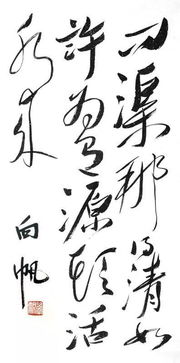 问渠那得清如
許为有源頭活
水来
向帆